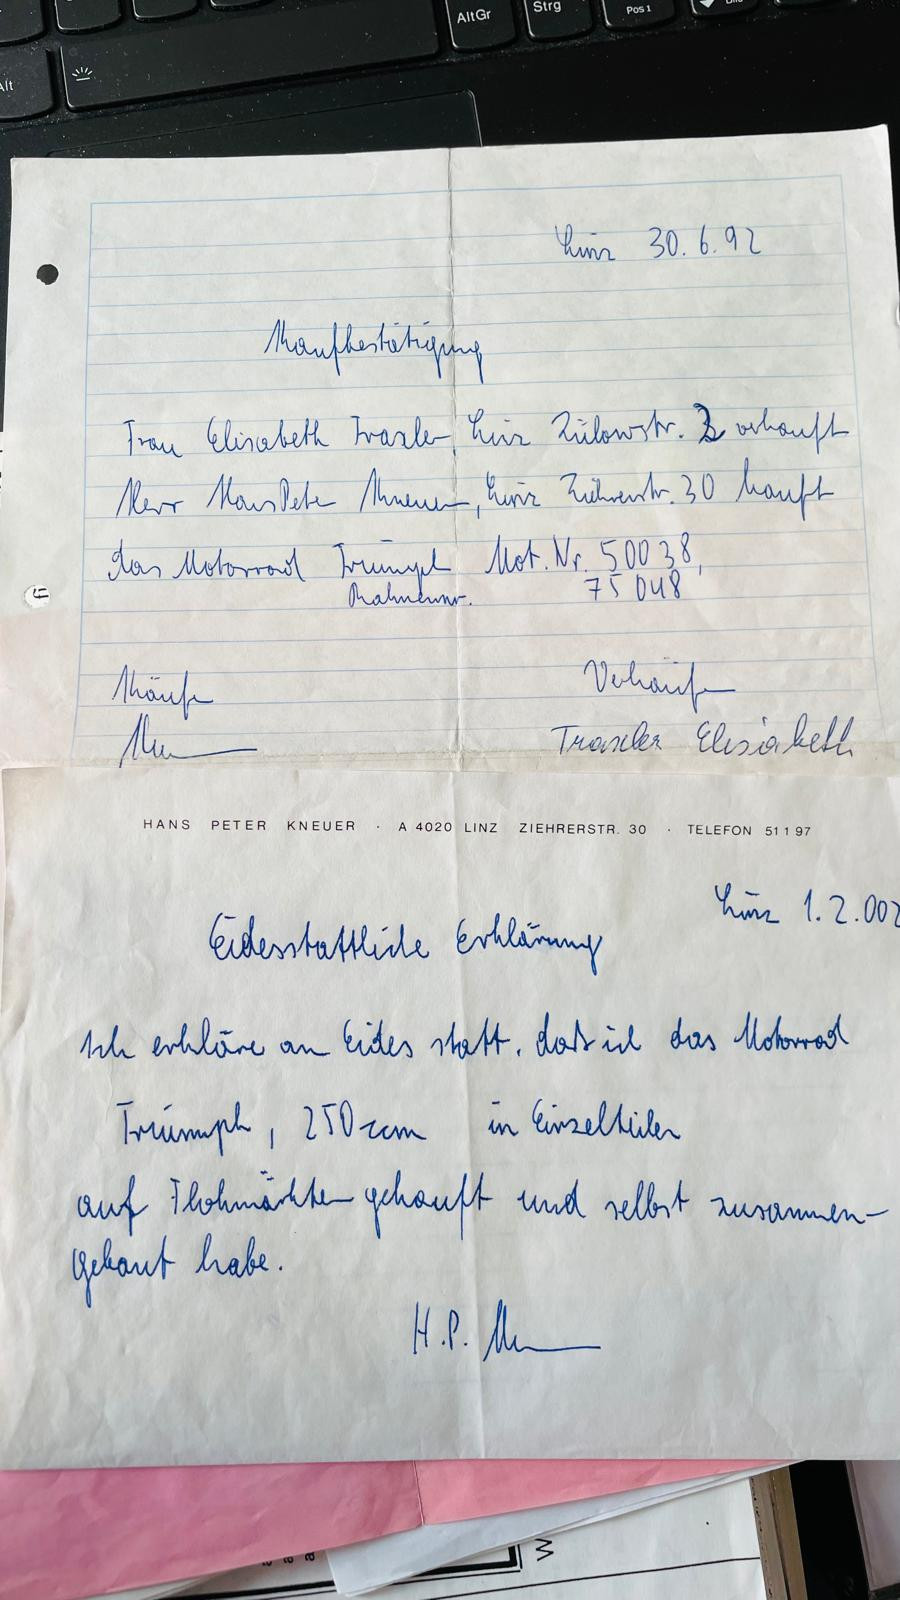 AltGr
Strg
Pos 1
Alt
Linz 30.6.92
Kaufbestätigung
Frau Elisabeth Traxler, Linz Zülowstr. 2 verkauft
Herr Hans Peter Kneuer, Linz Ziehrerstr. 30 kauft
das Motorrad Triumph Mot. Nr. 50038,
Rahmennr. 75048
Käufer
Verkäufer
Traxler Elisabeth
HANS PETER KNEUER · A 4020 LINZ ZIEHRERSTR. 30 · TELEFON 51 1 97
Linz 1.2.002
Eidesstattliche Erklärung
Ich erkläre an Eides statt, daß ich das Motorrad
Triumph, 250 ccm in Einzelteilen
auf Flohmärkten gekauft und selbst zusammen-
gebaut habe.
H.P.
W